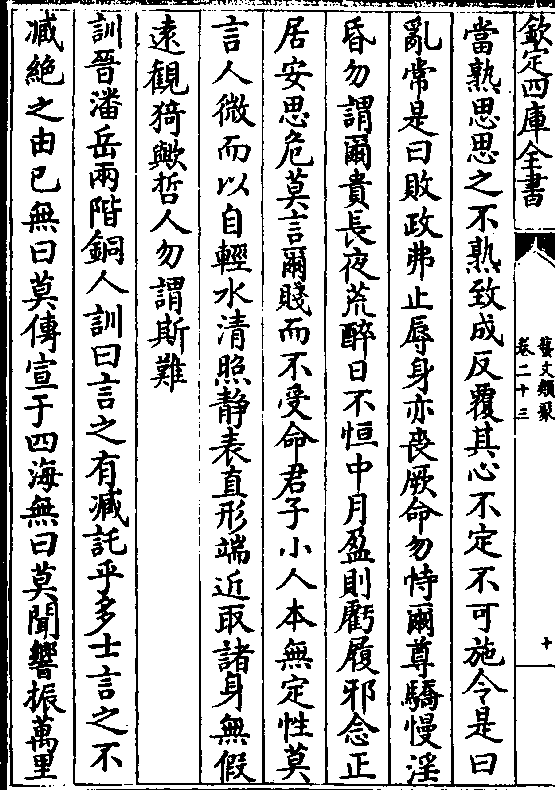 欽定四庫全書
藝文類聚
卷二十三
十
當熟思思之不熟致成反覆其心不定不可施令是曰
亂常是曰敗政弗止辱身亦喪厥命勿恃爾尊驕慢淫
昏勿謂爾貴長夜荒醉日不恒中月盈則虧履邪念正
居安思危莫言爾賤而不受命君子小人本無定性莫
言人微而以自輕水清照静表直形端近取諸身無假
逺觀猗歟哲人勿謂斯難
訓晉潘岳兩階銅人訓曰言之有減託乎多士言之不
減絶之由已無曰莫傳宣于四海無曰莫聞響振萬里